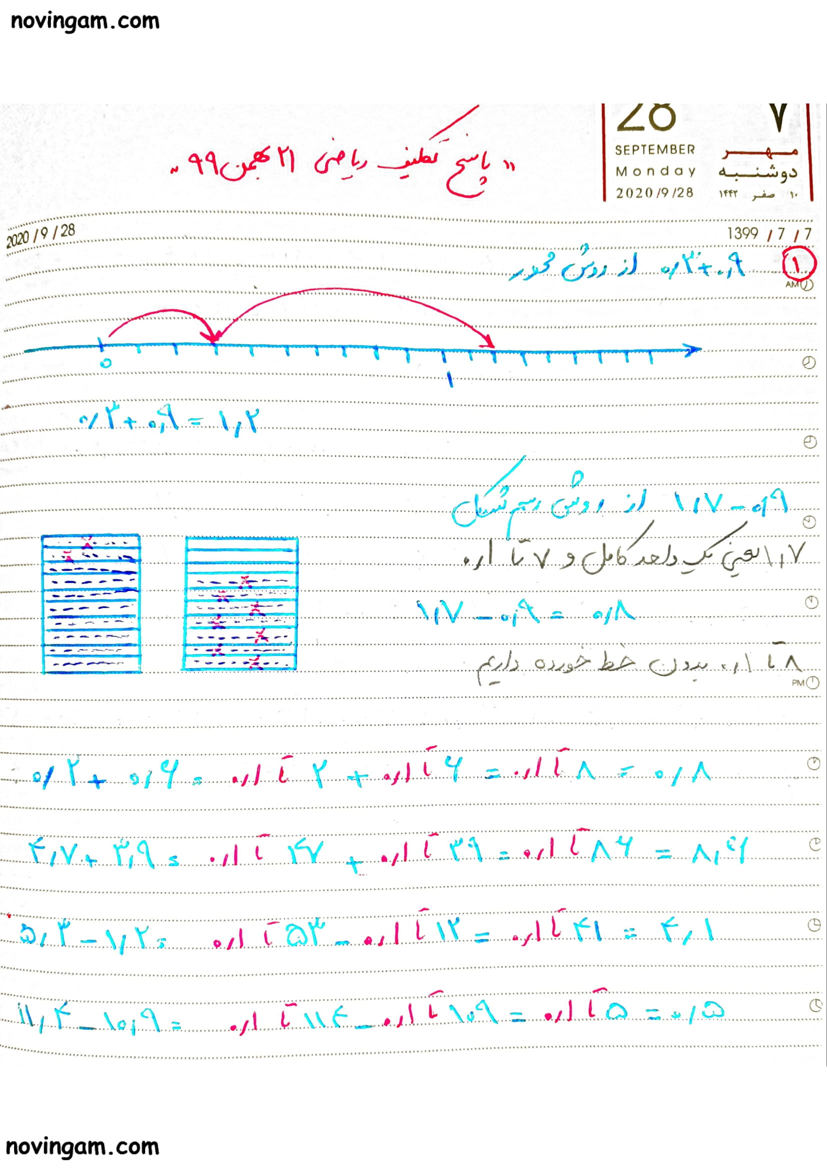 novingam.com
28
SEPTEMBER
Monday
2020/9/28
۷
مهر
دوشنبه
۱۰ صفر ۱۴۴۲
"پاسخ تکلیف ریاضی ۲۱ بهمن ۹۹"
2020/9/28
1399/7/7
۱ ۰/۳+۰/۹ از روش محور
AM
۰
۱
۰/۳+۰/۹=۱/۲
۱/۷-۰/۹ از روش رسم شکل
۱/۷ یعنی یک واحد کامل و ۷ تا ۰/۱
۱/۷-۰/۹=۰/۸
۸ تا ۰/۱ بدون خط خورده داریم
PM
۰/۲+۰/۶= ۲ تا ۰/۱ + ۶ تا ۰/۱ = ۸ تا ۰/۱ = ۰/۸
۴/۷+۳/۹= ۴۷ تا ۰/۱ + ۳۹ تا ۰/۱ = ۸۶ تا ۰/۱ = ۸/۶
۵/۳-۱/۲= ۵۳ تا ۰/۱ - ۱۲ تا ۰/۱ = ۴۱ تا ۰/۱ = ۴/۱
۱۱/۴-۱۰/۹= ۱۱۴ تا ۰/۱ - ۱۰۹ تا ۰/۱ = ۵ تا ۰/۱ = ۰/۵
novingam.com